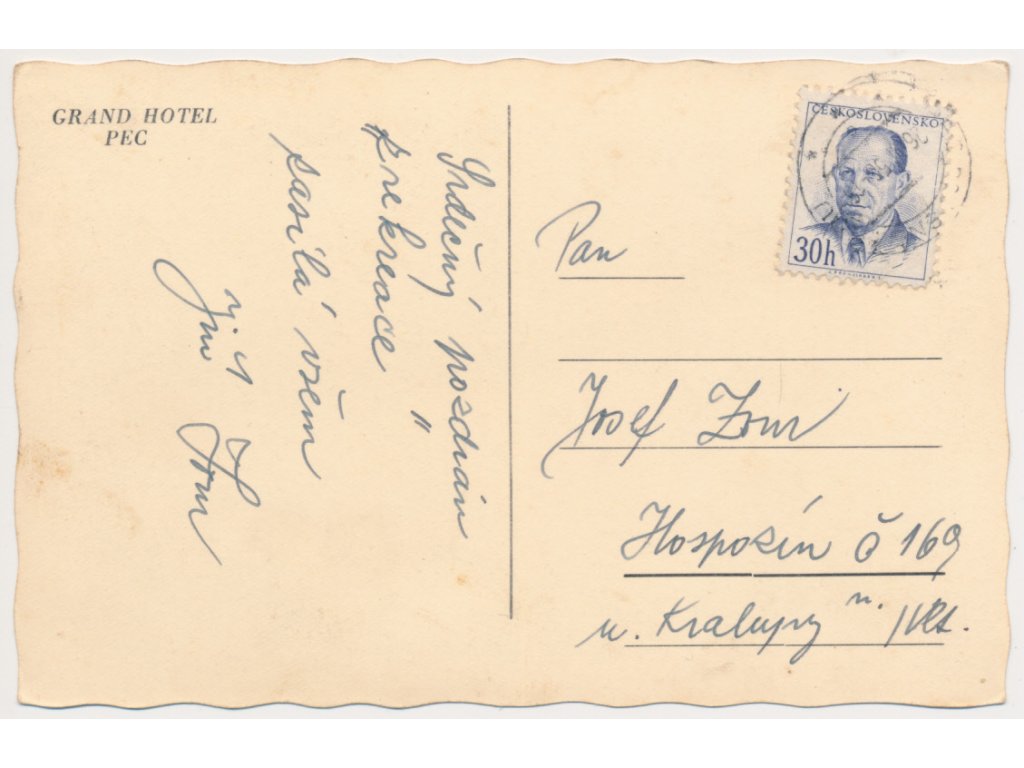 GRAND HOTEL
PEC
Srdečný pozdrav
z rekreace
sasílá všem
Jiří
ČESKOSLOVENSKO
30h
Pan
Josef
Hospozín č 169
u. Kralupy n. Vlt.